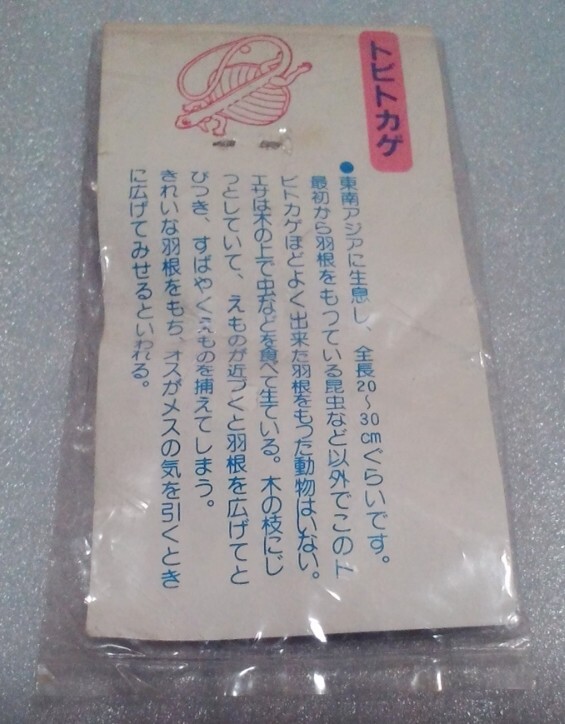 トビトカゲ
●東南アジアに生息し、全長20～30cmぐらいです。
最初から羽根をもっている昆虫など以外でこのト
ビトカゲほどよく出来た羽根をもった動物はいない。
エサは木の上で虫などを食べて生ている。木の枝にじ
っとしていて、えものが近づくと羽根を広げてと
びつき、すばやくえものを捕えてしまう。
きれいな羽根をもち、オスがメスの気を引くとき
に広げてみせるといわれる。